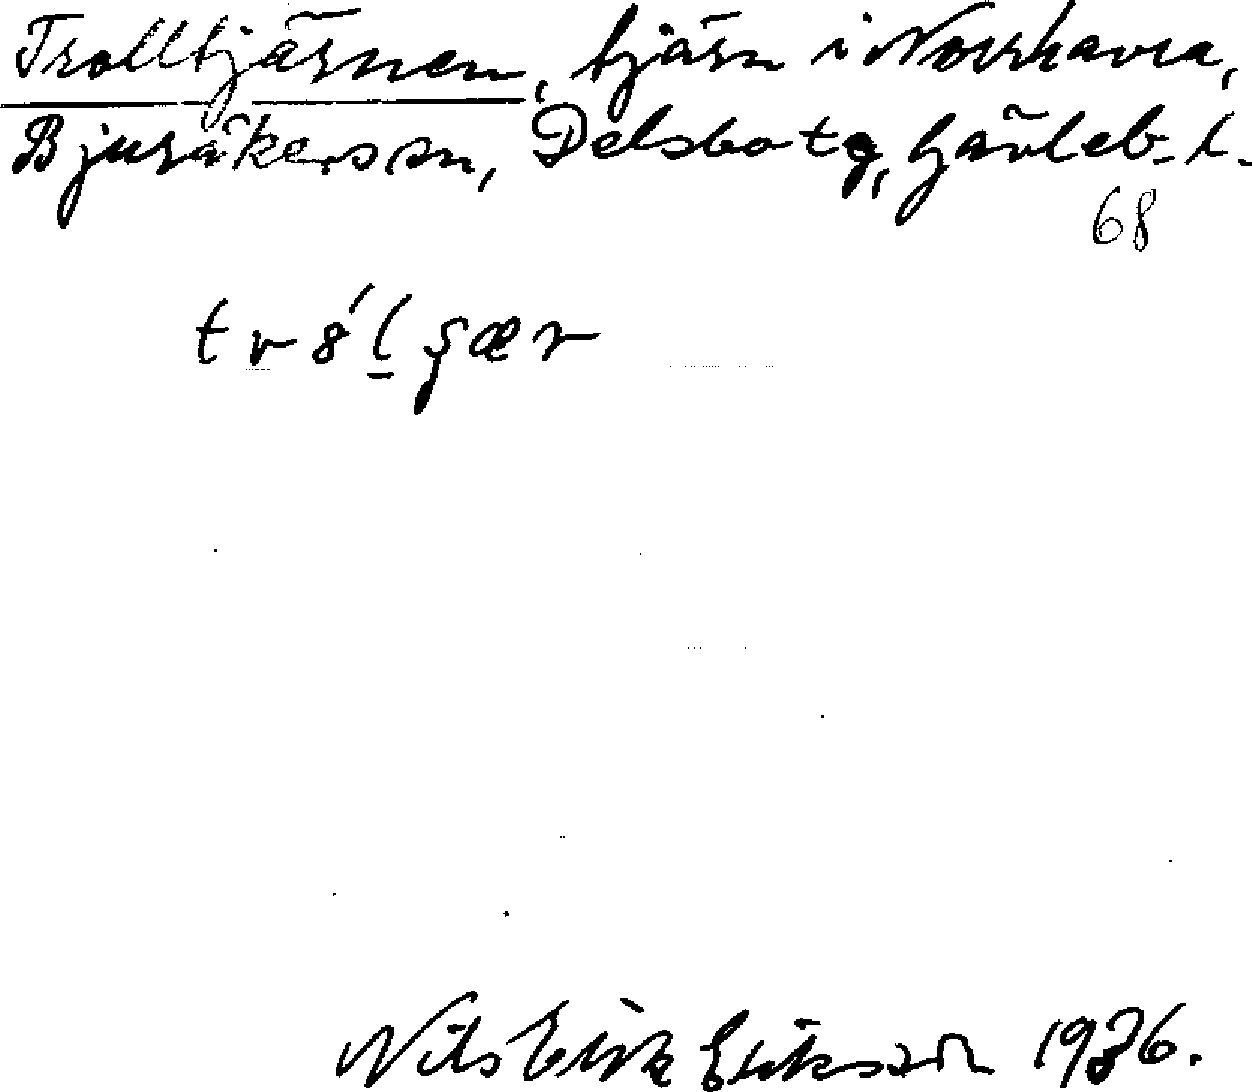 Trolltjärnen, tjärn i Norrhavra,
Bjuråkers sn, Delsbo tg, Gävleb. l.
68
Nils Erik Eriksson 1936.